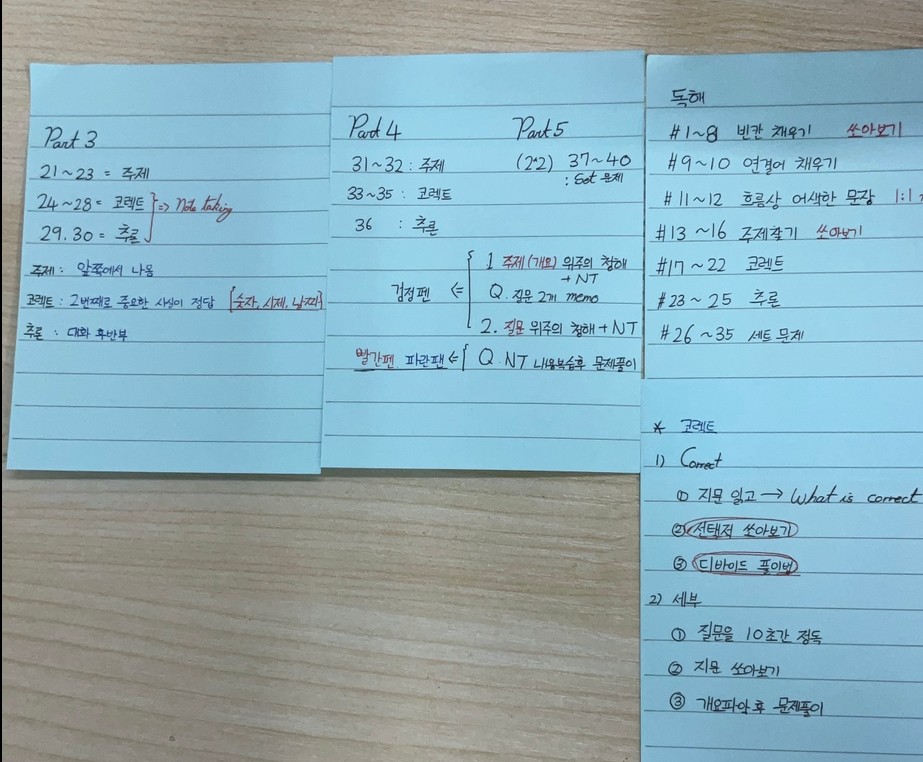 Part 3
21~23 = 주제
24~28 = 코렉트
29.30 = 추론
=> Note taking
주제 : 앞쪽에서 나옴
코렉트 : 2번째로 중요한 사실이 정답 [숫자, 시제, 날짜]
추론 : 대화 후반부
Part 4
31~32 : 주제
33~35 : 코렉트
36 : 추론
Part 5
(2*2) 37~40
: Set 문제
검정펜 <=
1 주제(개요) 위주의 청해
+ NT
Q. 질문 2개 memo
2. 질문 위주의 청해 + NT
빨간펜 파란팬 <= Q. NT 내용복습후 문제풀이
독해
#1~8 빈칸 채우기 쏘아보기
#9~10 연결어 채우기
#11~12 흐름상 어색한 문장 1:1
#13~16 주제찾기 쏘아보기
#17~22 코렉트
#23~25 추론
#26~35 세트 문제
* 코렉트
1) Correct
① 지문 읽고 → What is correct
② 선택지 쏘아보기
③ 디바이드 풀이법
2) 세부
① 질문을 10초간 정독
② 지문 쏘아보기
③ 개요파악 후 문제풀이